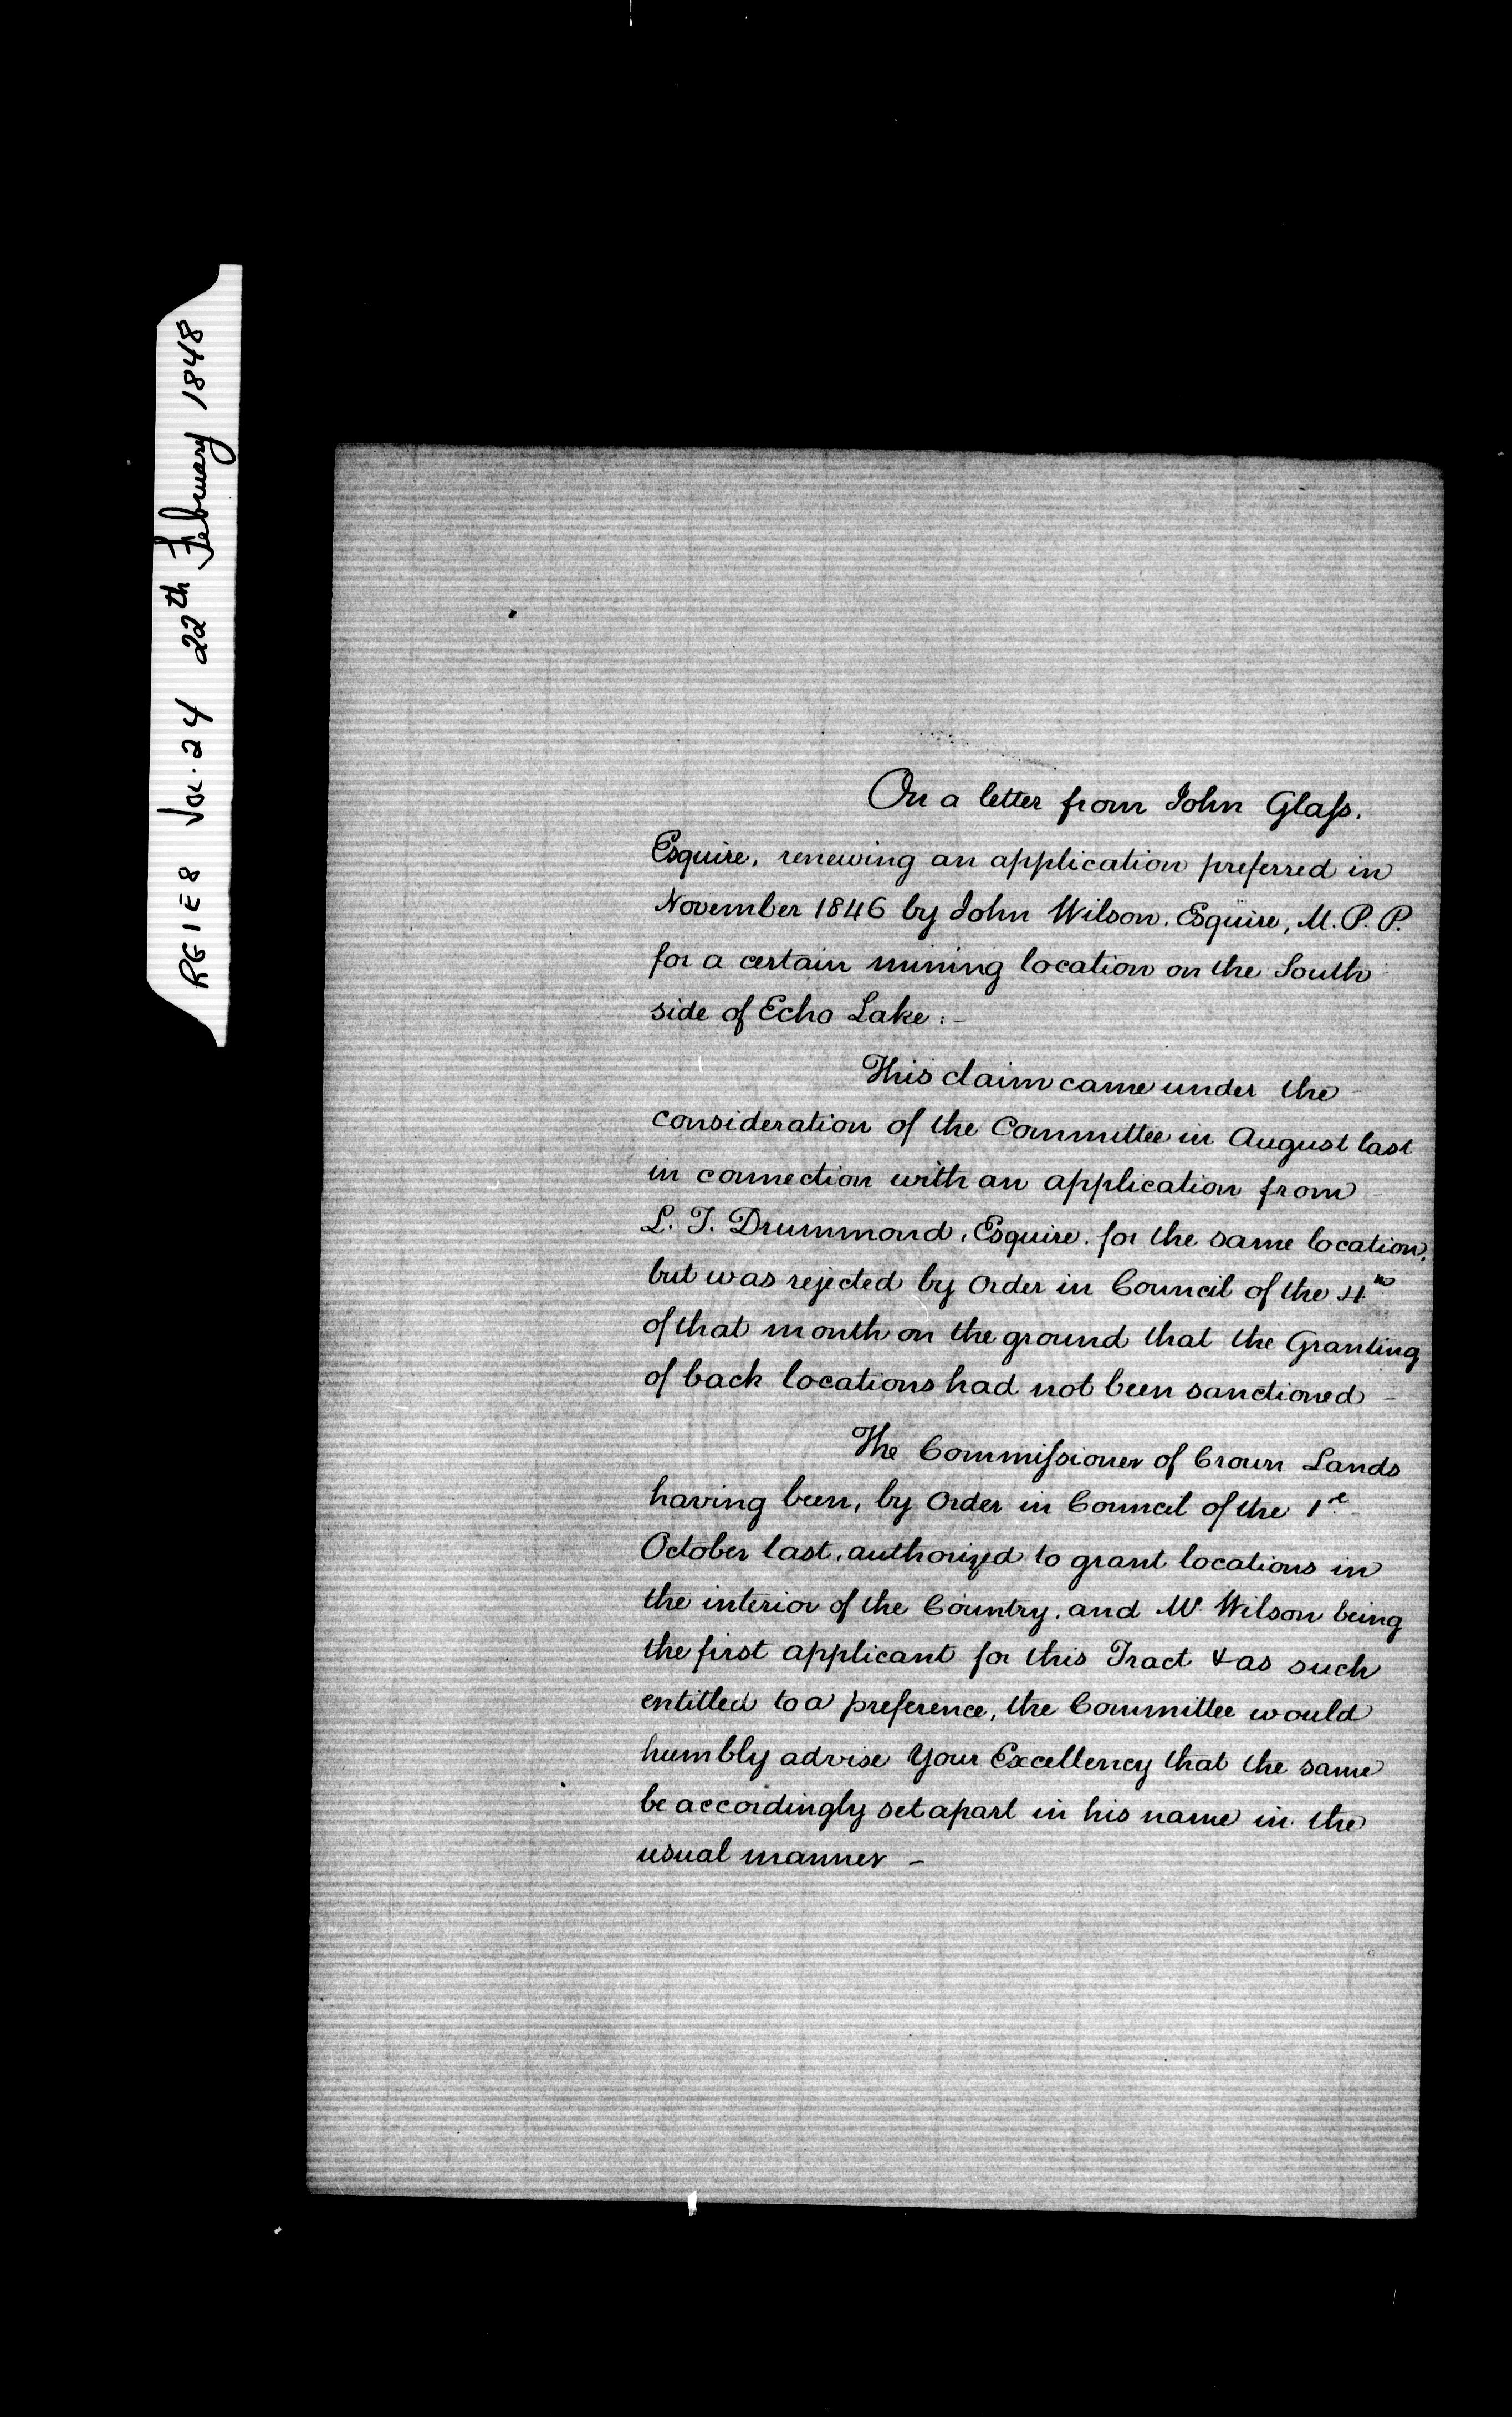 RG1E8 Vol. 24 22th February 1848
On a letter from John Glaſs.
Esquire, renewing an application preferred in
November 1846 by John Wilson, Esquire, M. P. P.
for a certain mining location on the South
side of Echo Lake :-
This claim came under the
consideration of the Committee in August last
in connection with an application from
L. T. Drummond, Esquire. for the same location,
but was rejected by Order in Council of the 4th
of that month on the ground that the Granting
of back locations had not been sanctioned -
The Commiſsioner of Crown Lands
having been, by Order in Council of the 1st
October last, authorized to grant locations in
the interior of the Country, and Mr Wilson being
the first applicant for this Tract & as such
entitled to a preference, the Committee would
humbly advise Your Excellency that the same
be accordingly set apart in his name in the
usual manner -